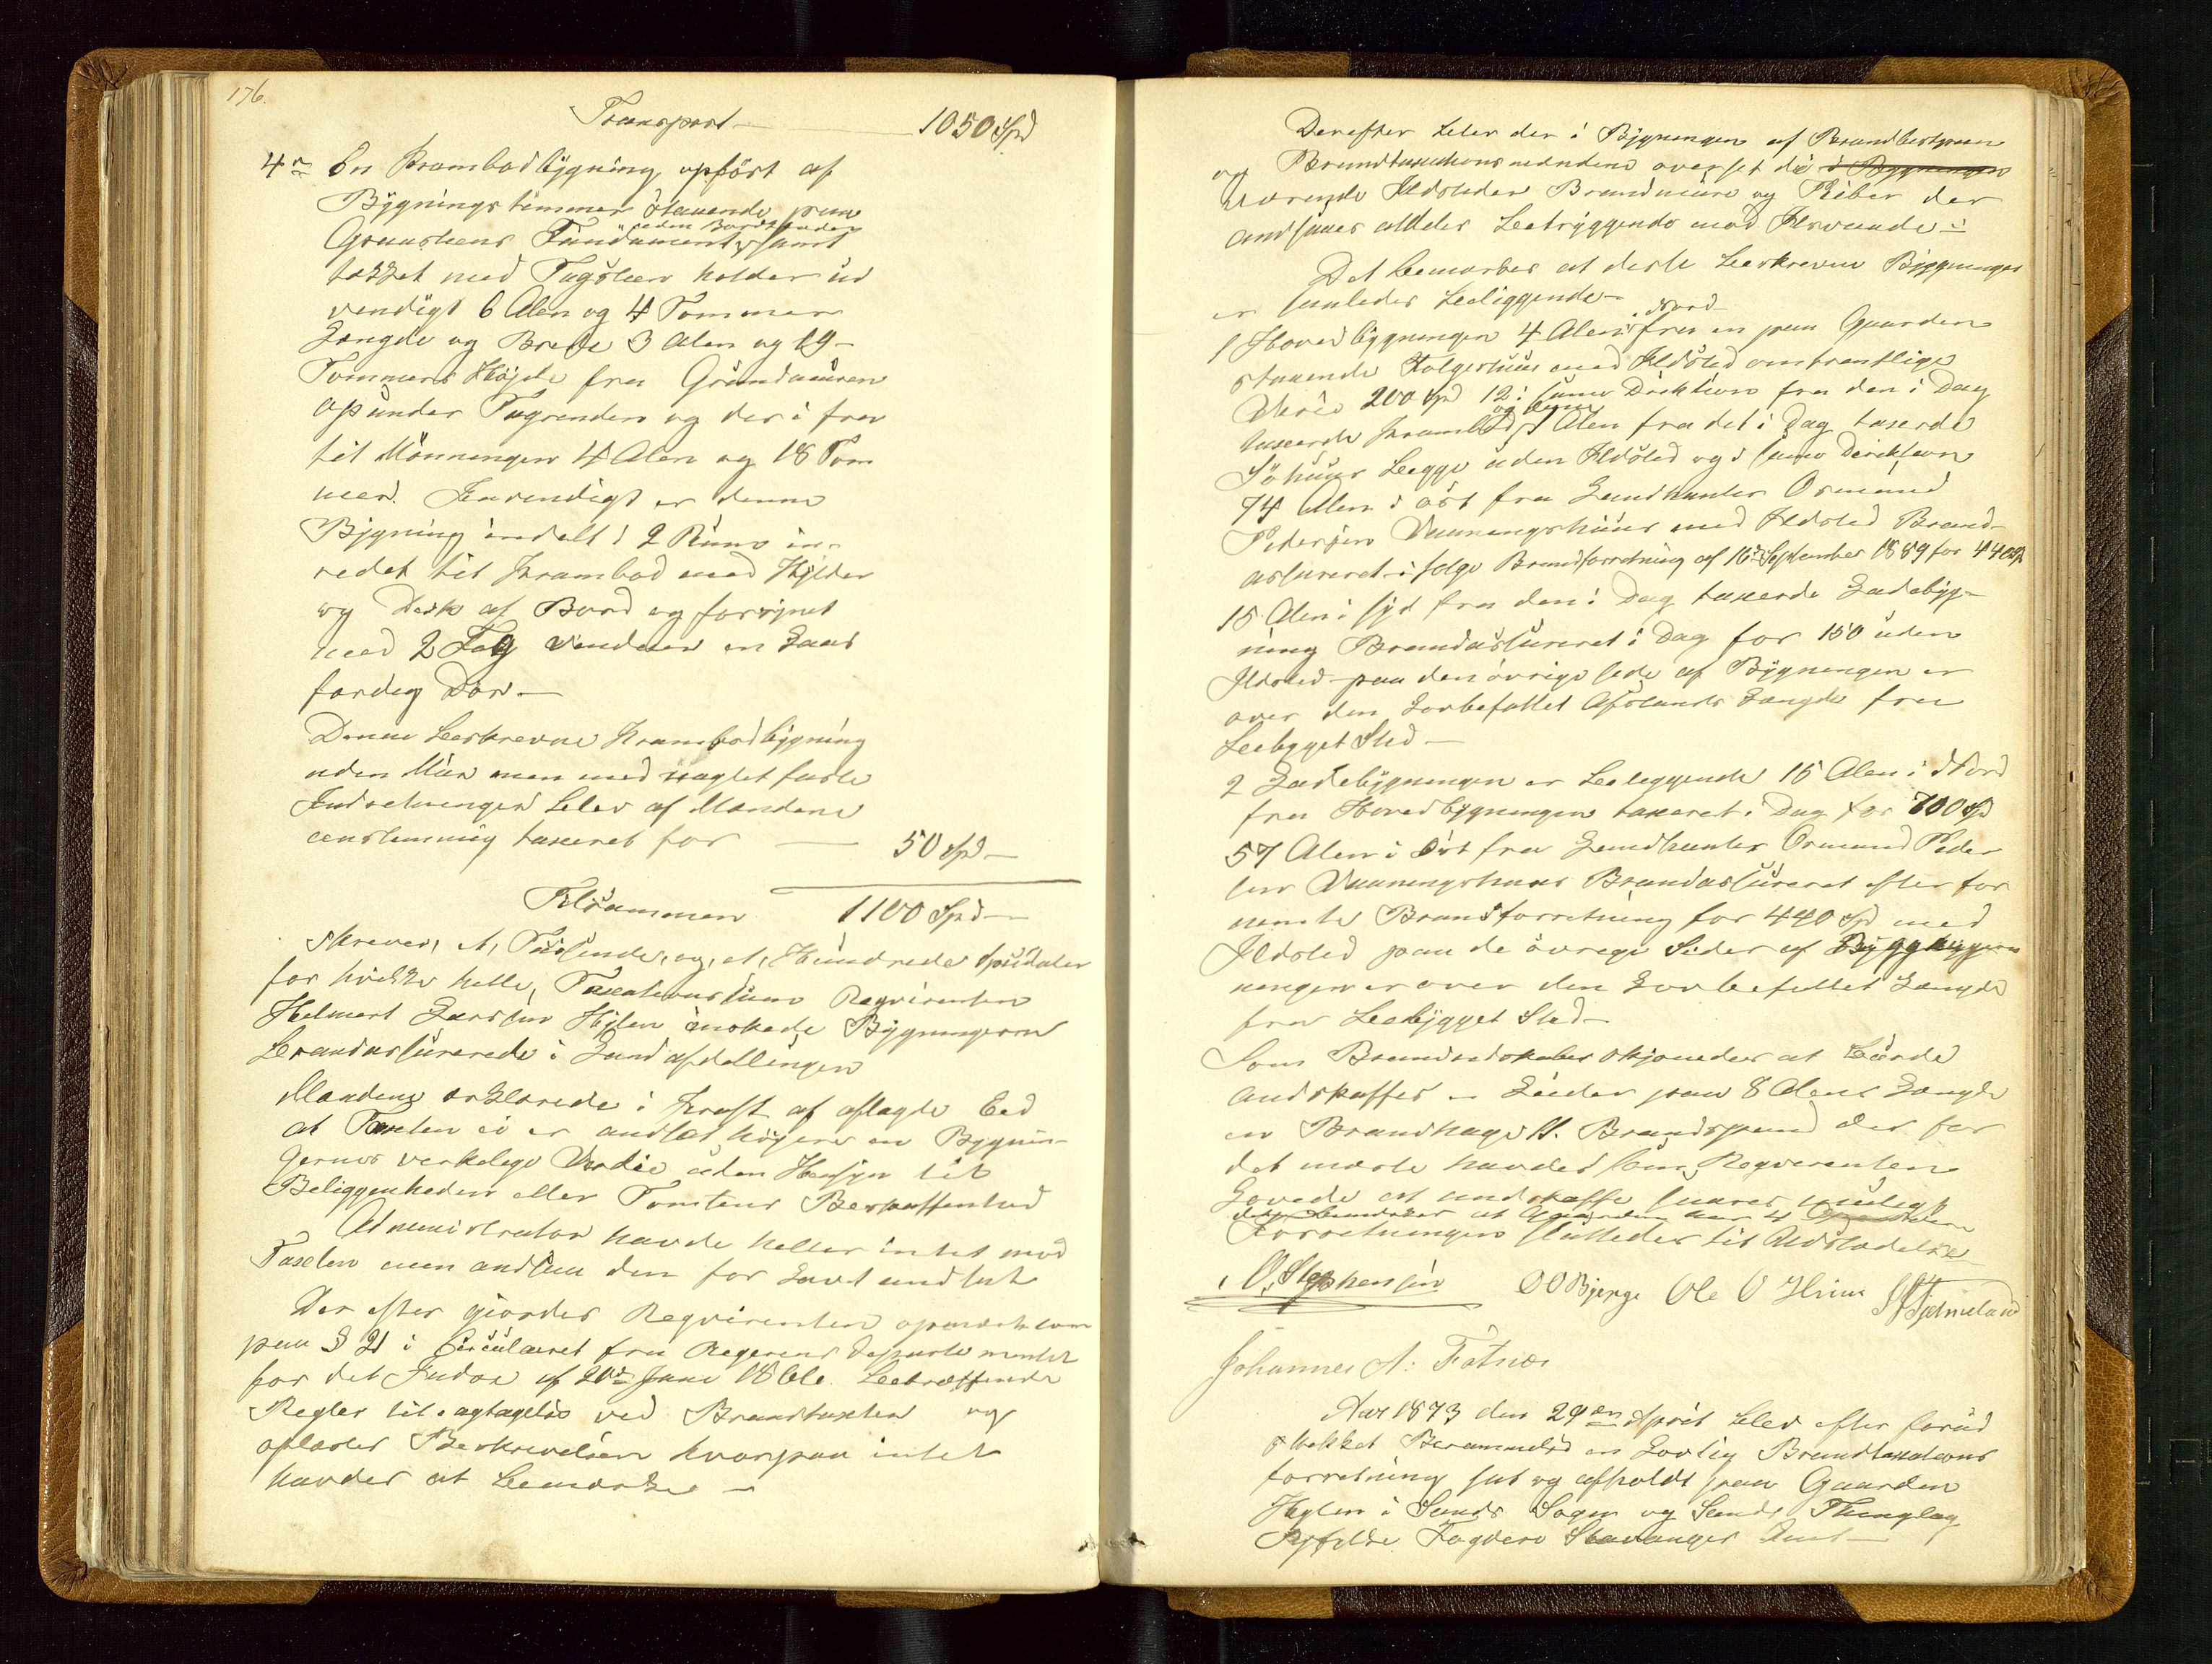 176.
Transport — 1050 Spd
4de En Krambodbygning opført af
Bygningstimmer staaende paa
Graastens Fundament, samt
uden Bordklæder
tækket med Tagsteen holder ud
vendigt 6 Alen og 4 Tommer
Længde og Brede 3 Alen og 19
Tommers Højde fra Grundmuren
op under Tagrenden og der i fra
til Mønningen 4 Alen og 18 Tom
mer. Indvendigt er denne
Bygning inddelt i 2 Rum ind
redet til Krambod med Hylder
og Disk af Bord og forsynet
med 2 Fag Vinduer en Laas
færdig Dør. —
Denne beskrevne Krambodbygning
uden Mur men med naglet faste
Indretninger blev af Mændene
eenstemmig taxeret for — 50 Spd —
Tilsammen 1100 Spd —
skriver, et, Tusinde, og, et, Hundrede Speciedaler
for hvilke hele, Taxationssum Reqvirenten
Helmert Larsen Hylen ønskede Bygningerne
brandassurerede i Landafdelingen
Mændene erklærede i Kraft af aflagde Eed
at Taxten ei er andsat højere en Bygnin
gernes verkelige Værdie uden Hensyn til
Beliggenheden eller Tomtens Beskaffenhed
Administrator havde heller intet mod
Taxten men andsaa den for Lavt andsat
Der efter gjordes Reqvirenten opmærksom
paa § 21 i Circulæret fra Regjerens Departementet
for det Indre af 20de Juni 1866. betræffende
Regler til agtagelse ved Brandtaxten og
oplæstes Beskrivelsen hvorpaa intet
havdes at bemærke —
Derefter blev der i Bygningen af Brandbestyren
og Brandtaxationsmændene overset de i Bygningen
værende Ildsteder Brandmure og Piber der
andsaaes alldeles betryggende mod Ilsvaade —
Det bemærkes at diste beskrevne Bygninger
er saaledes beliggende —
1 Hovedbygningen 4 Alen i Nord fra en paa Gaarden
staaende Folgehuus med Ildsted omtrentlige
Værdi 200 Spd 12 i samme Direktion fra den i Dag
taxerede Krambod og denne 1 Alen fra det i Dag taxerede
Søhuus begge uden Ildsted og i samme Direktion
74 Alen i øst fra Landhandler Osmund
Pedersen Vaaningshuus med Ildsted Brand-
assureret i følge Brandforretning af 16de September 1859 for 440 Spd
15 Alen i syd fra den i Dag taxerede Ladebyg-
ning Brandassureret i Dag for 150 uden
Ildsted paa den øvrige side af Bygningen er
over den Lovbefattet Afstands Længde fra
bebygget Sted —
2 Ladebygningen er beliggende 15 Alen i Nord
fra Hovedbygningen taxeret i Dag for 700 Spd
57 Alen i Øst fra Landhandler Osmund Peder
sen Vaaningshuus Brandassureret efter for
nemte Brandforretning for 440 Spd med
Ildsted paa de øvrige Sider af Byg
ningen er over den Lovbefattet Længde
fra bebygget Sted —
Som Brandredskaber skjønedes at burde
andskaffes en Leider paa 8 Alens Længde
en Brandhage 11. Brandspand der for
det meste havdes som Reqvirenten
Lovede at andskaffe snares muligt
det bemærkes at Gaarden har 4
Forretningen sluttedes til Aldstædelse
O. Stephensen O O Bjerge Ole O Hiim
Johannes A: Fatnæs
Aar 1873 den 29de April blev efter forud
skikket Berammelse en Lovlig Brandtaxations
forretning sat og afholdt paa Gaarden
Hylen i Sands Sogn og Sands Thinglag
Ryfylke Fogderi Stavanger Amt —